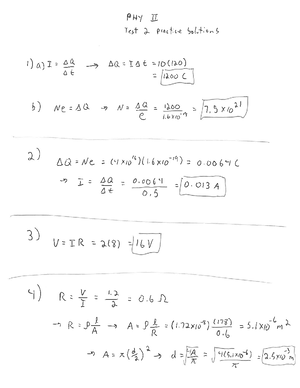 PHY II
Test 2 practice Solutions
1) a) I = ΔQ/Δt → ΔQ = IΔt = 10(120)
= 1200 C
b) Ne = ΔQ → N = ΔQ/e = 1200/1.6x10⁻¹⁹ = 7.5x10²¹
2) ΔQ = Ne = (4x10¹⁶)(1.6x10⁻¹⁹) = 0.0064 C
→ I = ΔQ/Δt = 0.0064/0.5 = 0.013 A
3) V = IR = 2(8) = 16 V
4) R = V/I = 1.2/2 = 0.6 Ω
→ R = ρ l/A → A = ρ l/R = (1.72x10⁻⁸)(178)/0.6 = 5.1x10⁻⁶ m²
→ A = π(d/2)² → d = √4A/π = √4(5.1x10⁻⁶)/π = 2.5x10⁻³ m